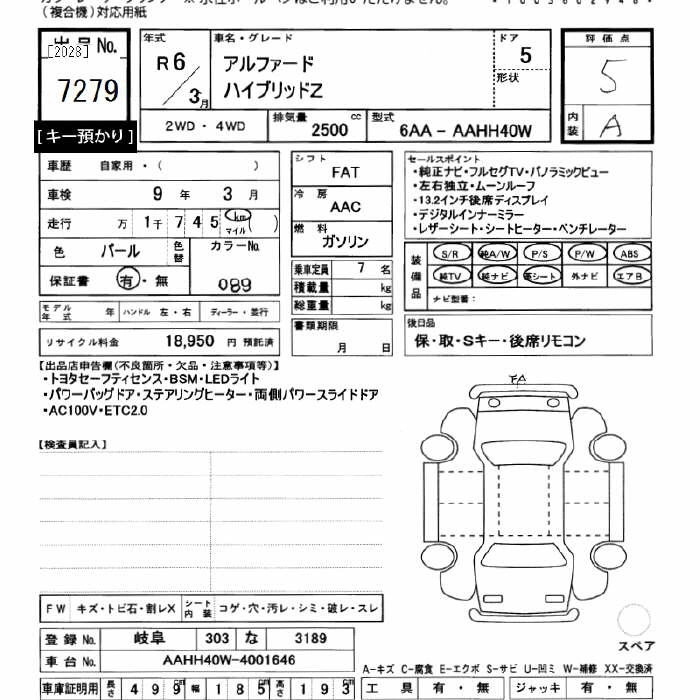 (複合機)対応用紙
出品No.
[2028]
7279
[キー預かり]
年式
R6/3月
車名・グレード
アルファード
ハイブリッドZ
ドア
5
形状
評価点
5
内装
A
2WD・4WD
排気量 2500 cc
型式 6AA-AAHH40W
車歴 自家用・( )
車検 9年 3月
走行 万 1千 7 4 5 km マイル ( )
色 パール 色替 カラーNo. 089
保証書 有・無
モデル年式 年 ハンドル 左・右 ディーラー・並行
リサイクル料金 18,950 円 預託済
シフト
FAT
冷房
AAC
燃料
ガソリン
乗車定員 7 名
積載量 kg
総重量 kg
書類期限
月 日
セールスポイント
・純正ナビ・フルセグTV・パノラミックビュー
・左右独立・ムーンルーフ
・13.2インチ後席ディスプレイ
・デジタルインナーミラー
・レザーシート・シートヒーター・ベンチレーター
装備品
S/R 純A/W P/S P/W ABS
純TV 純ナビ 革シート 外ナビ エアB
ナビ型番：
後日品
保・取・Sキー・後席リモコン
【出品店申告欄(不良箇所・欠品・注意事項等)】
・トヨタセーフティセンス・BSM・LEDライト
・パワーバックドア・ステアリングヒーター・両側パワースライドドア
・AC100V・ETC2.0
【検査員記入】
FW キズ・トビ石・割レX シート内装 コゲ・穴・汚レ・シミ・破レ・スレ
登録No. 岐阜 303 な 3189
車台No. AAHH40W-4001646
車庫証明用 長さ 499cm 幅 185cm 高さ 193cm
スペア
A-キズ C-腐食 E-エクボ S-サビ U-凹ミ W-補修 XX-交換済
工具 有・無 ジャッキ 有・無